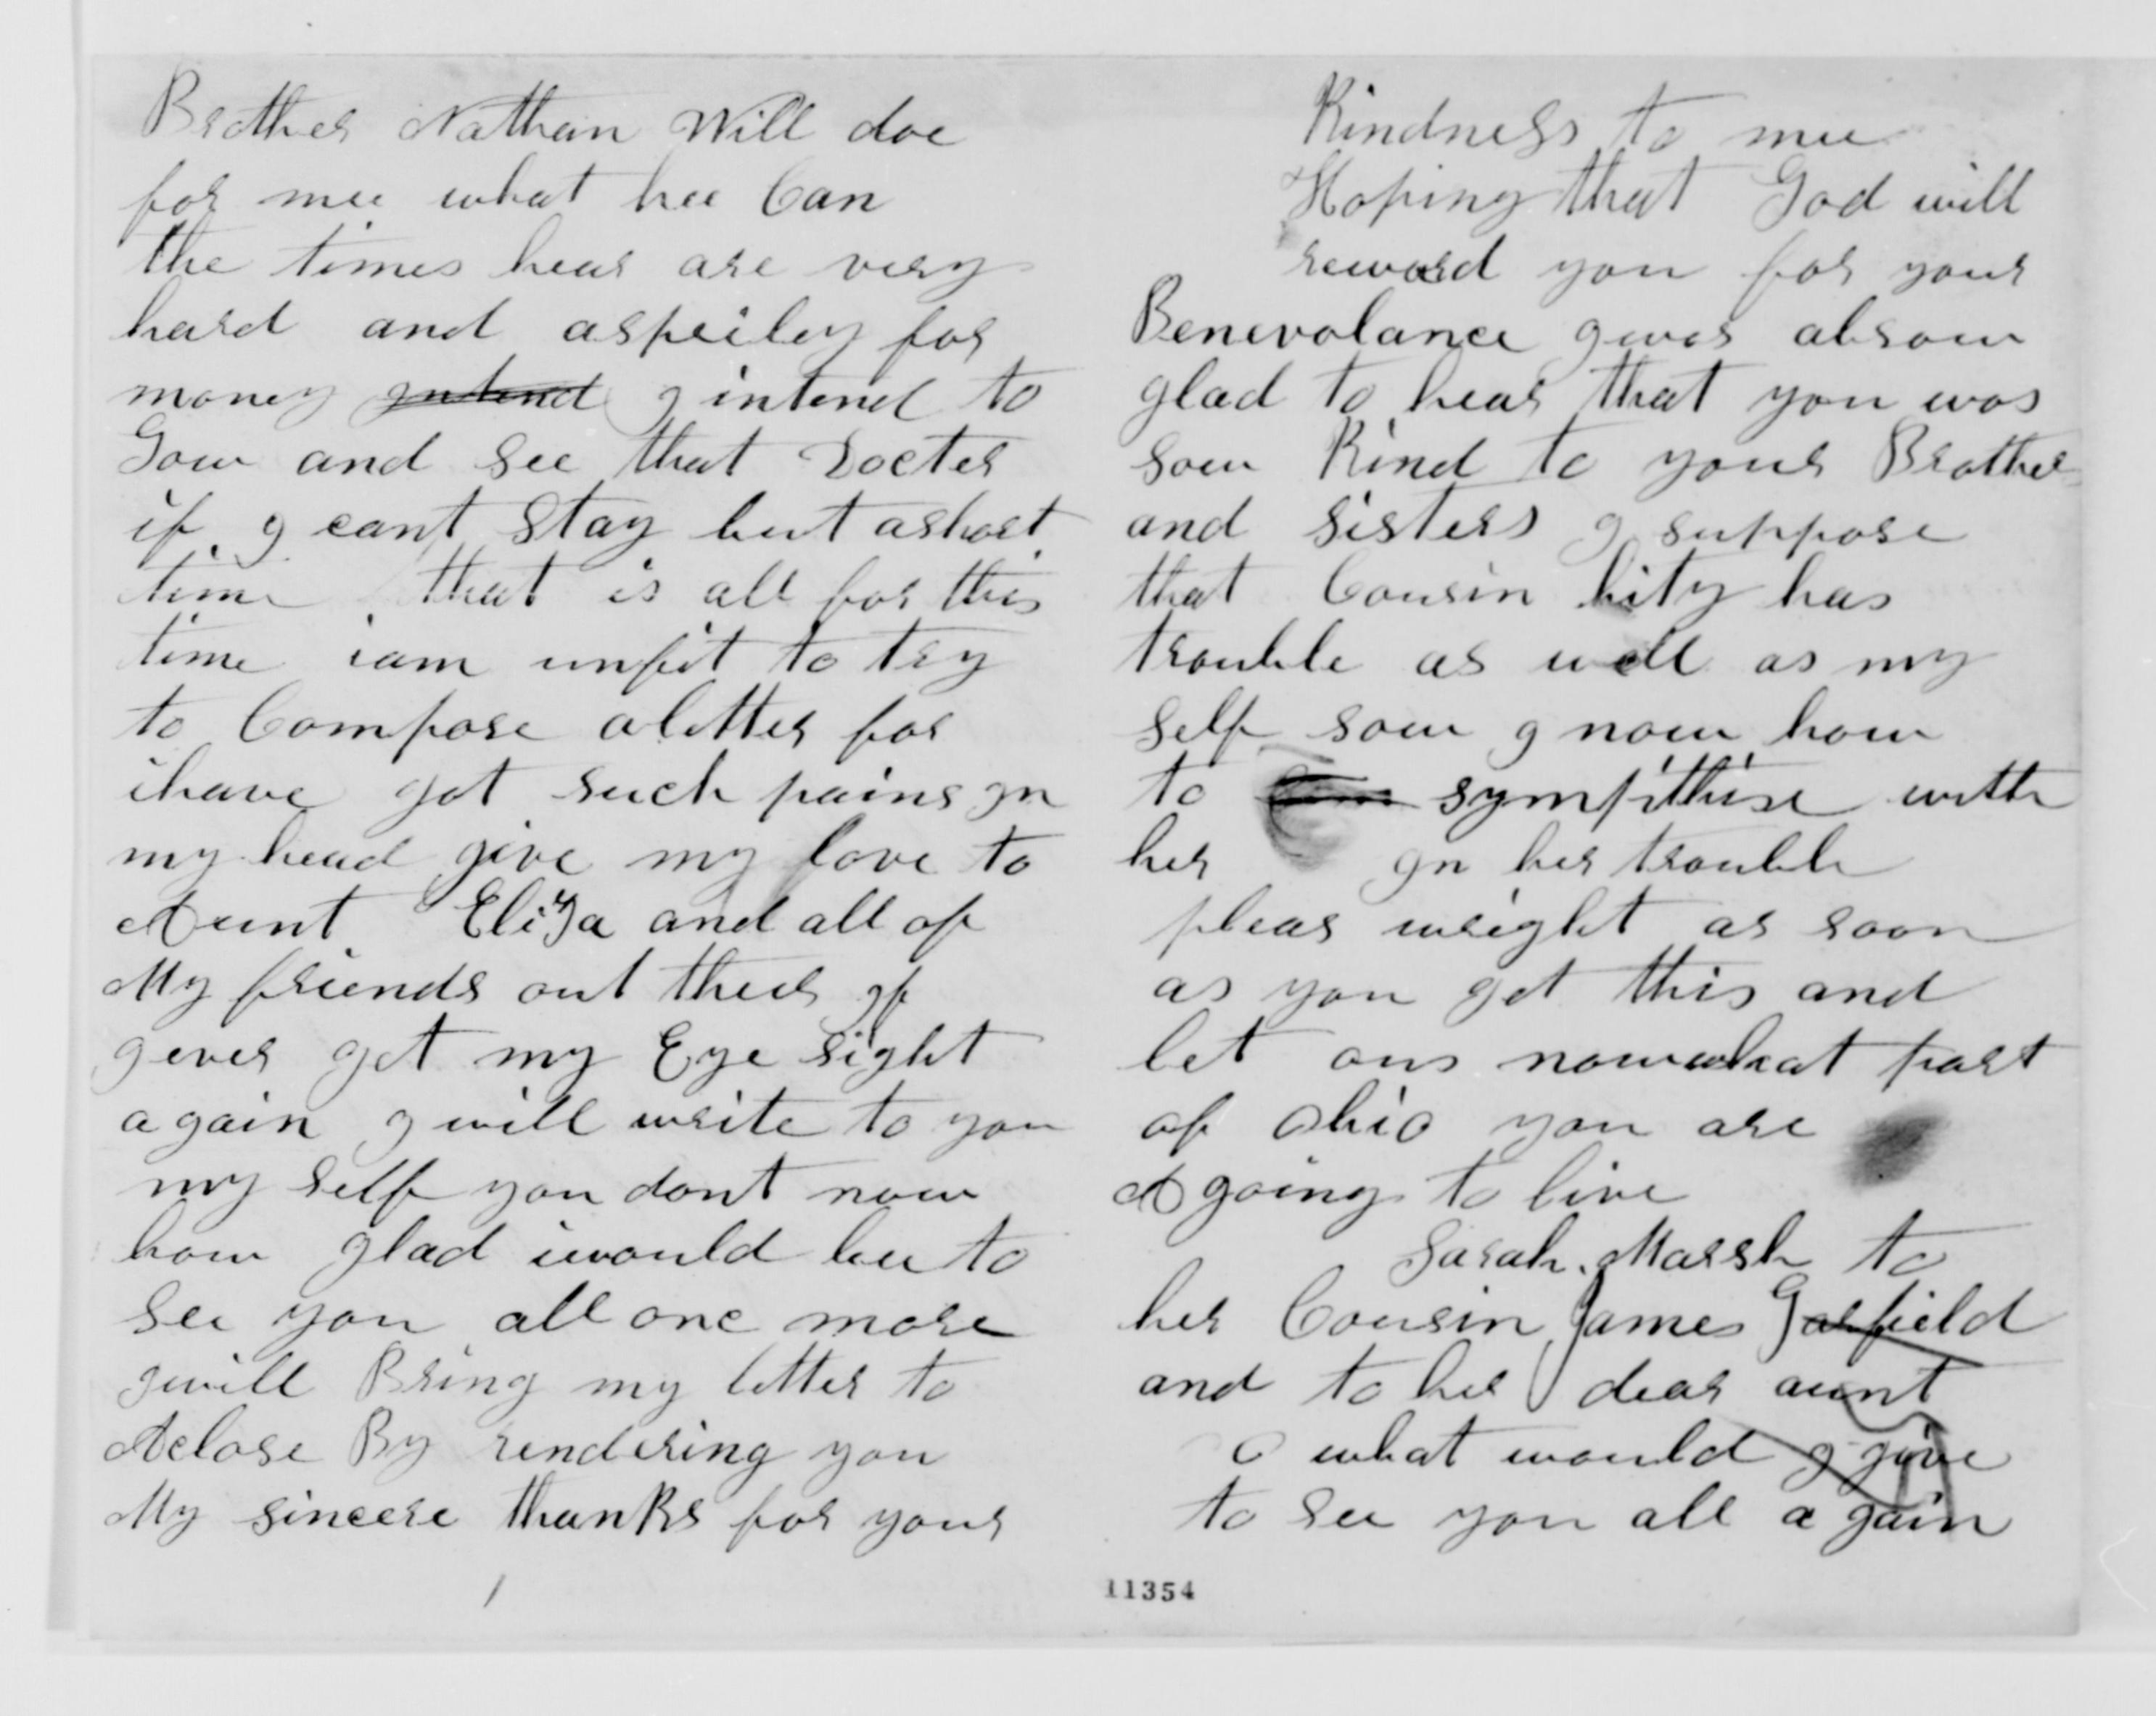 Brother Nathan Will doe
for mee what hee Can
the times hear are very
hard and aspeiley for
money intend I intend to
Gow and see that Docter
if I cant stay but ashort
time that is all for this
time iam unfit to try
to Compose aletter for
ihave got such pains In
my head give my love to
Aunt Eliza and all of
My friends out theer If
I ever get my Eye sight
again I will write to you
my self you dont now
how glad iwould bee to
see you all one more
I will Bring my letter to
Aclose By rendering you
My sincere thanks for your
Kindness to mee
Hoping that God will
reward you for your
Benevolance I was alsow
glad to hear that you was
sow Kind to your Brother
and sisters I suppose
that Cousin hity has
trouble as well as my
self sow I now how
to sympithise with
her In her trouble
pleas wright as soon
as you get this and
let ous nowwhat part
of Ohio you are
A going to live
Sarah Marsh to
her Cousin James Garfield
and to her dear aunt
O what would I give
to see you all again
11354